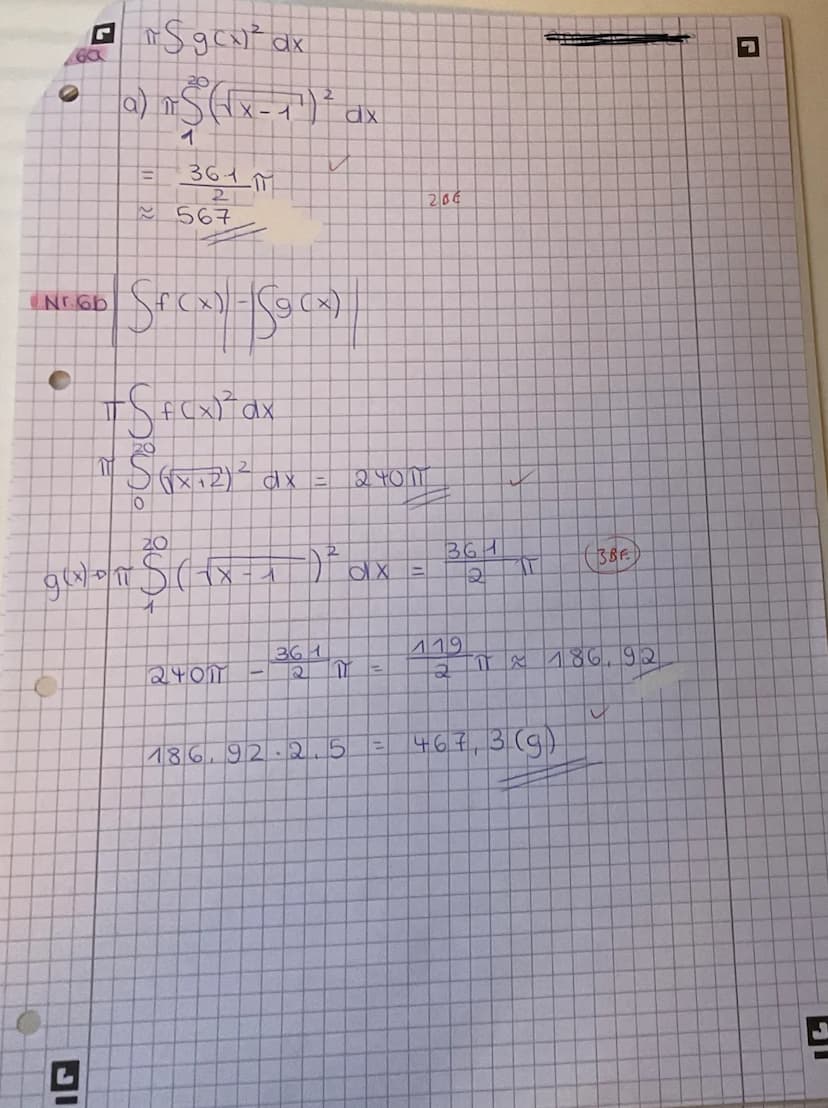 6a
π∫g(x)² dx
a) π ∫₁²⁰ (√x-1)² dx
= 361/2 π
≈ 567
2BE
Nr.6b |∫f(x)|-|∫g(x)|
π∫f(x)² dx
π ∫₀²⁰ (√x+2)² dx = 240π
g(x)→ π ∫₁²⁰ (√x-1)² dx = 361/2 π
3BE
240π - 361/2 π = 119/2 π ≈ 186,92
186,92 · 2,5 = 467,3(g)